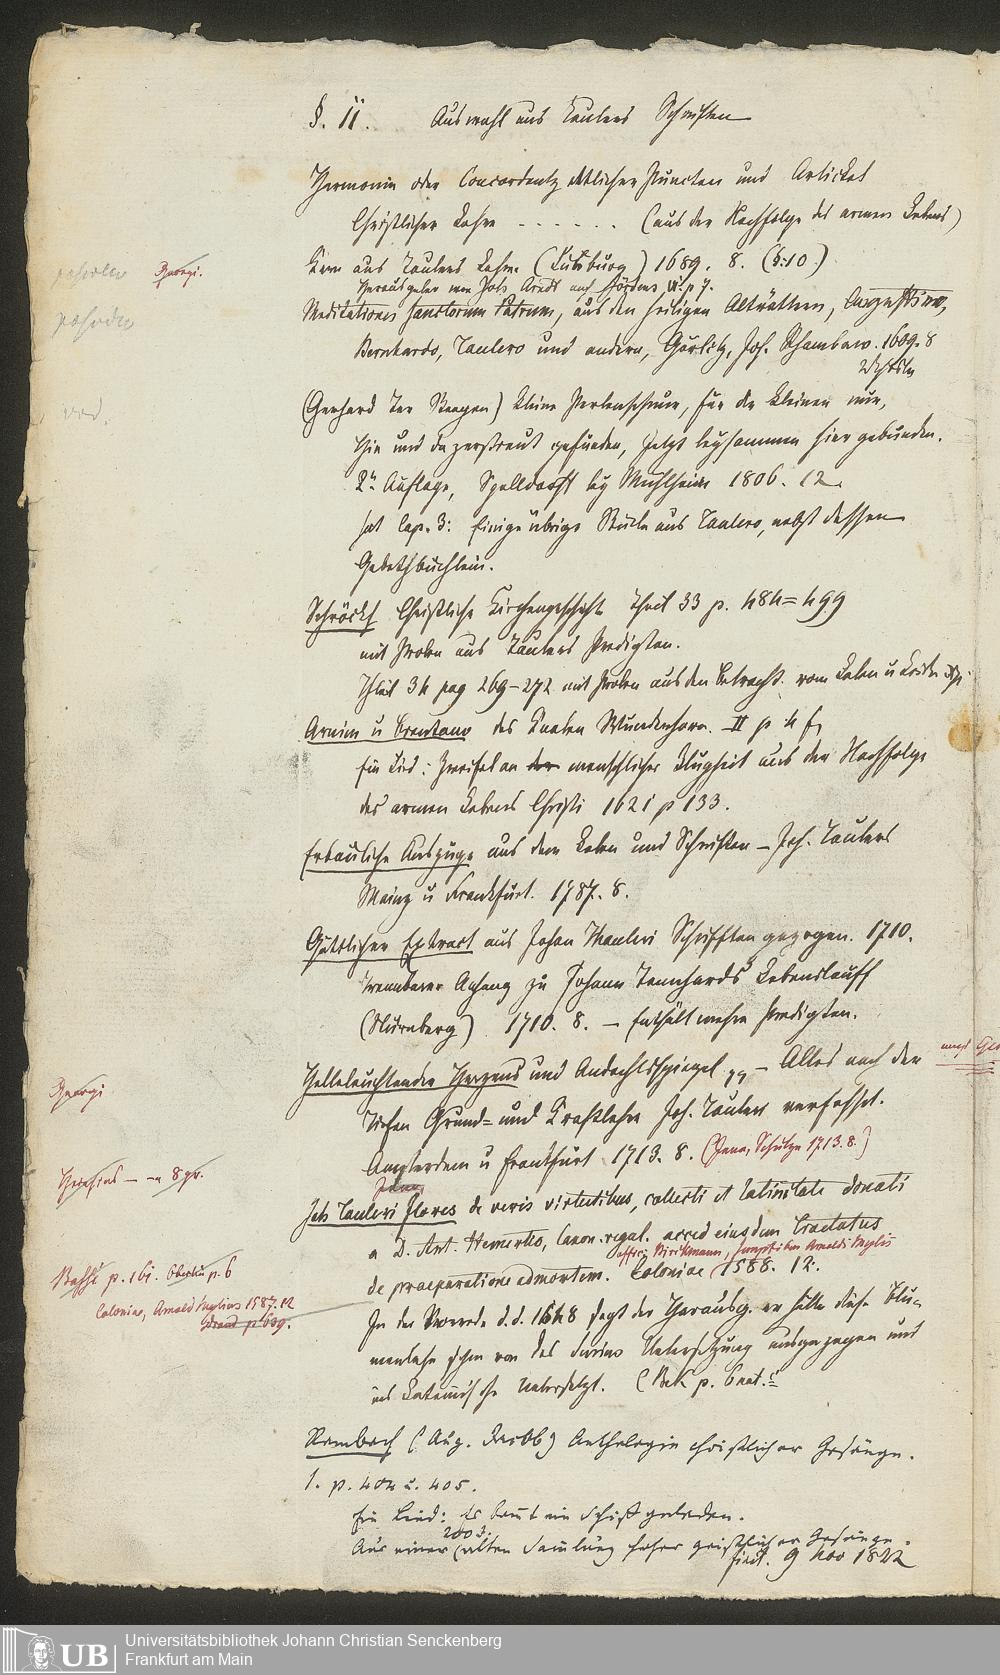 §. 11. Auswahl aus Taulers Schriften
Harmonia oder Concordantz ettlicher Puncten und Artickel
Christlicher Lehre - - - - - - (aus der Nachfolge des armen Lebens)
Georgi.
Kern aus Taulers Lehre (Lutzburg) 1689. 8. (§:10)
Meditationes sanctorum Patrum, aus den heiligen Altvättern, Augustino,
Bernhardo, Taulero und andern, Görlitz, Joh. Rhambaw. 1609. 8
(Gerhard Ter Steegen) kleine Perlenschnur, für die Kleinen nur,
hie und da zerstreut gefunden, jetzt beysammen hier gebunden.
2te Auflage, Spelldorff bey Mühlheim 1806. 12.
hat Cap. 3: Einige übrige Stücke aus Taulero, nebst dessen
Gebethbüchlein.
Schröckh Christliche Kirchengeschichte Theil 33 p. 484=499
mit Proben aus Taulers Predigten.
Theil 34 pag 269-272 mit Proben aus den Betracht. vom Leben u Leiden
Arnim u Brentano des Knaben Wunderhorn. II p 4 f,
ein Lied: Zweifel an der menschlicher Klugheit aus der Nachfolge
des armen Lebens Christi 1621 p 133.
Erbauliche Auszüge aus dem Leben und Schriften - Joh. Taulers
Mainz u Frankfurt. 1787. 8.
Göttlicher Extract aus Johan Thauleri Schrifften gezogen. 1710.
Anhang zu Johann Tennhards Lebenslauff
(Nürnberg) 1710. 8. - Enthält mehre Predigten.
Georgi
Helleleuchtender Herzens und Andachtsspiegel - Alles nach der
Tiefen Grund= und Kraftlehre Joh. Tauleri verfasset.
Amsterdam u Frankfurt 1713. 8. (Jena, Schultze 1713. 8.)
8 gr.
Joh Tauleri Flores de veris virtutibus, collecti et Latinitate donati
a D. Ant. Hemertio, Canon. regul. acced ejusdem Tractatus
offic. Birckmann, sumptibus Arnoldi Mylii
de praeparatione ad mortem. Coloniae 1588. 12.
p. 161. Oberlin p. 6
Coloniae, Arnold Mylius 1587. 12
Draud p 609.
In der Vorrede d.d. 1548 sagt der Herausg. er hätte diese Blu=
menlese schon vor des Surius Uebersetzung ausgezogen und
ins Lateinische übersetzt.
Rambach (Aug. Jacob) Anthologie christlicher Gesänge.
1. p. 404 u. 405.
Ein Lied: Es kommt ein Schiff geladen.
Aus einer alten Sammlung hoher geistlicher Gesänge.
9 Nov 1822
UB Universitätsbibliothek Johann Christian Senckenberg
Frankfurt am Main